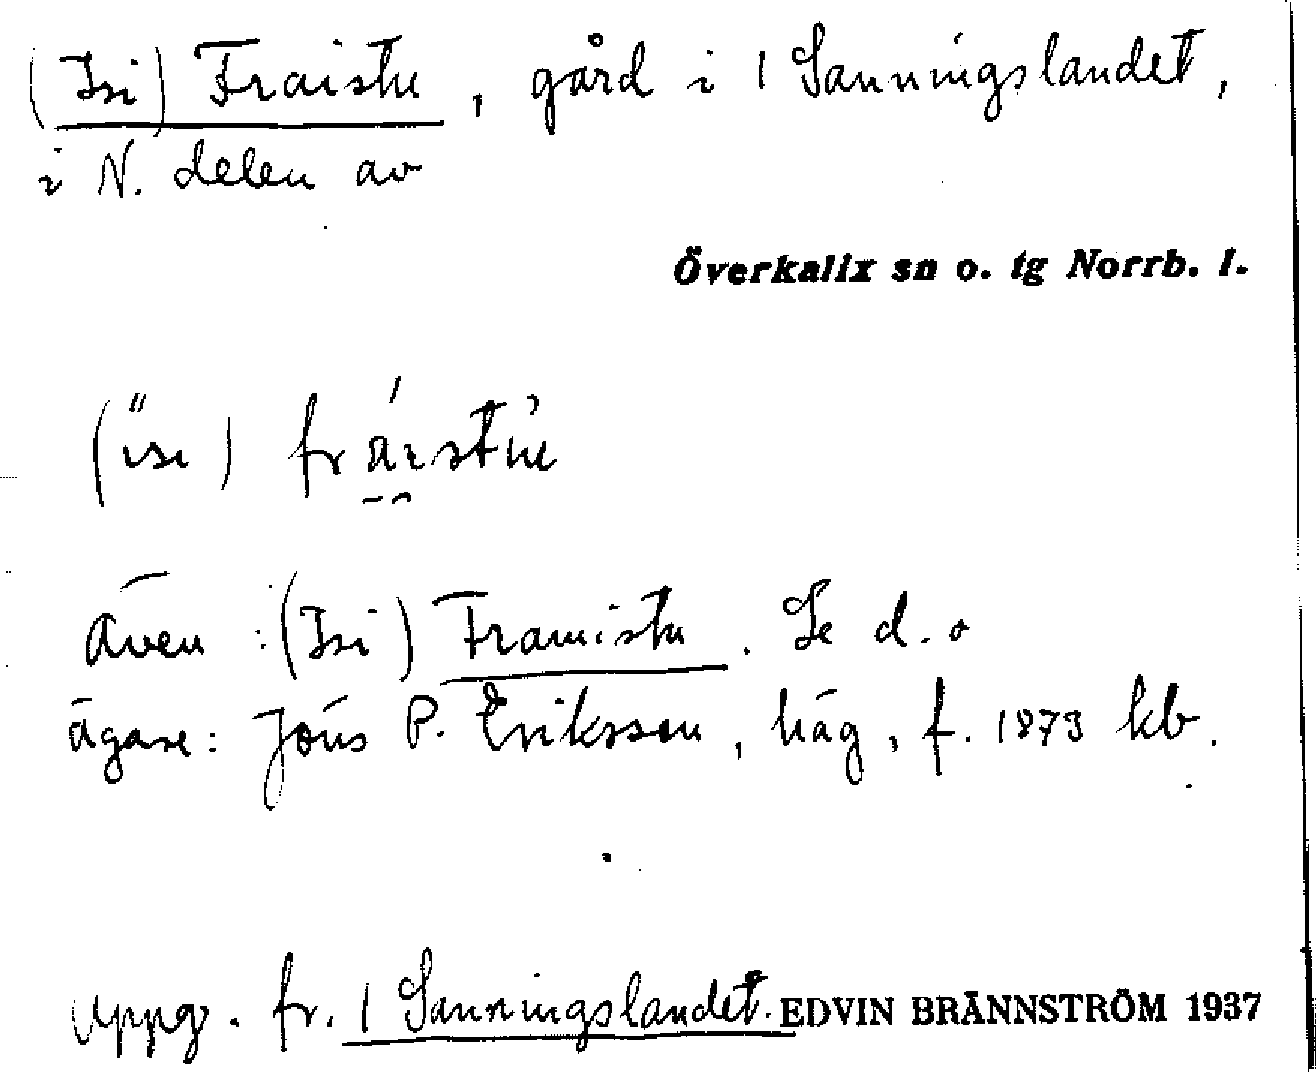 (Isi) Fraistu, gård i 1 Sanningslandet,
i N. delen av
Överkalix sn o. tg Norrb. l.
(isi)
även : (Isi) Framistu. Se d. o
ägare: Jöns P. Eriksson, häg, f. 1873 kb.
uppg. fr. 1 Sanningslandet. EDVIN BRÄNNSTRÖM 1937